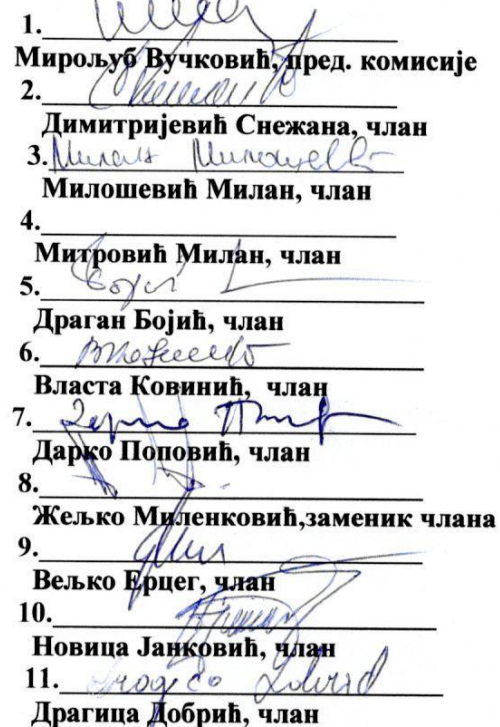 1.
Мирољуб Вучковић, пред. комисије
2.
Димитријевић Снежана, члан
3.
Милошевић Милан, члан
4.
Митровић Милан, члан
5.
Драган Бојић, члан
6.
Власта Ковинић, члан
7.
Дарко Поповић, члан
8.
Жељко Миленковић,заменик члана
9.
Вељко Ерцег, члан
10.
Новица Јанковић, члан
11.
Драгица Добрић, члан